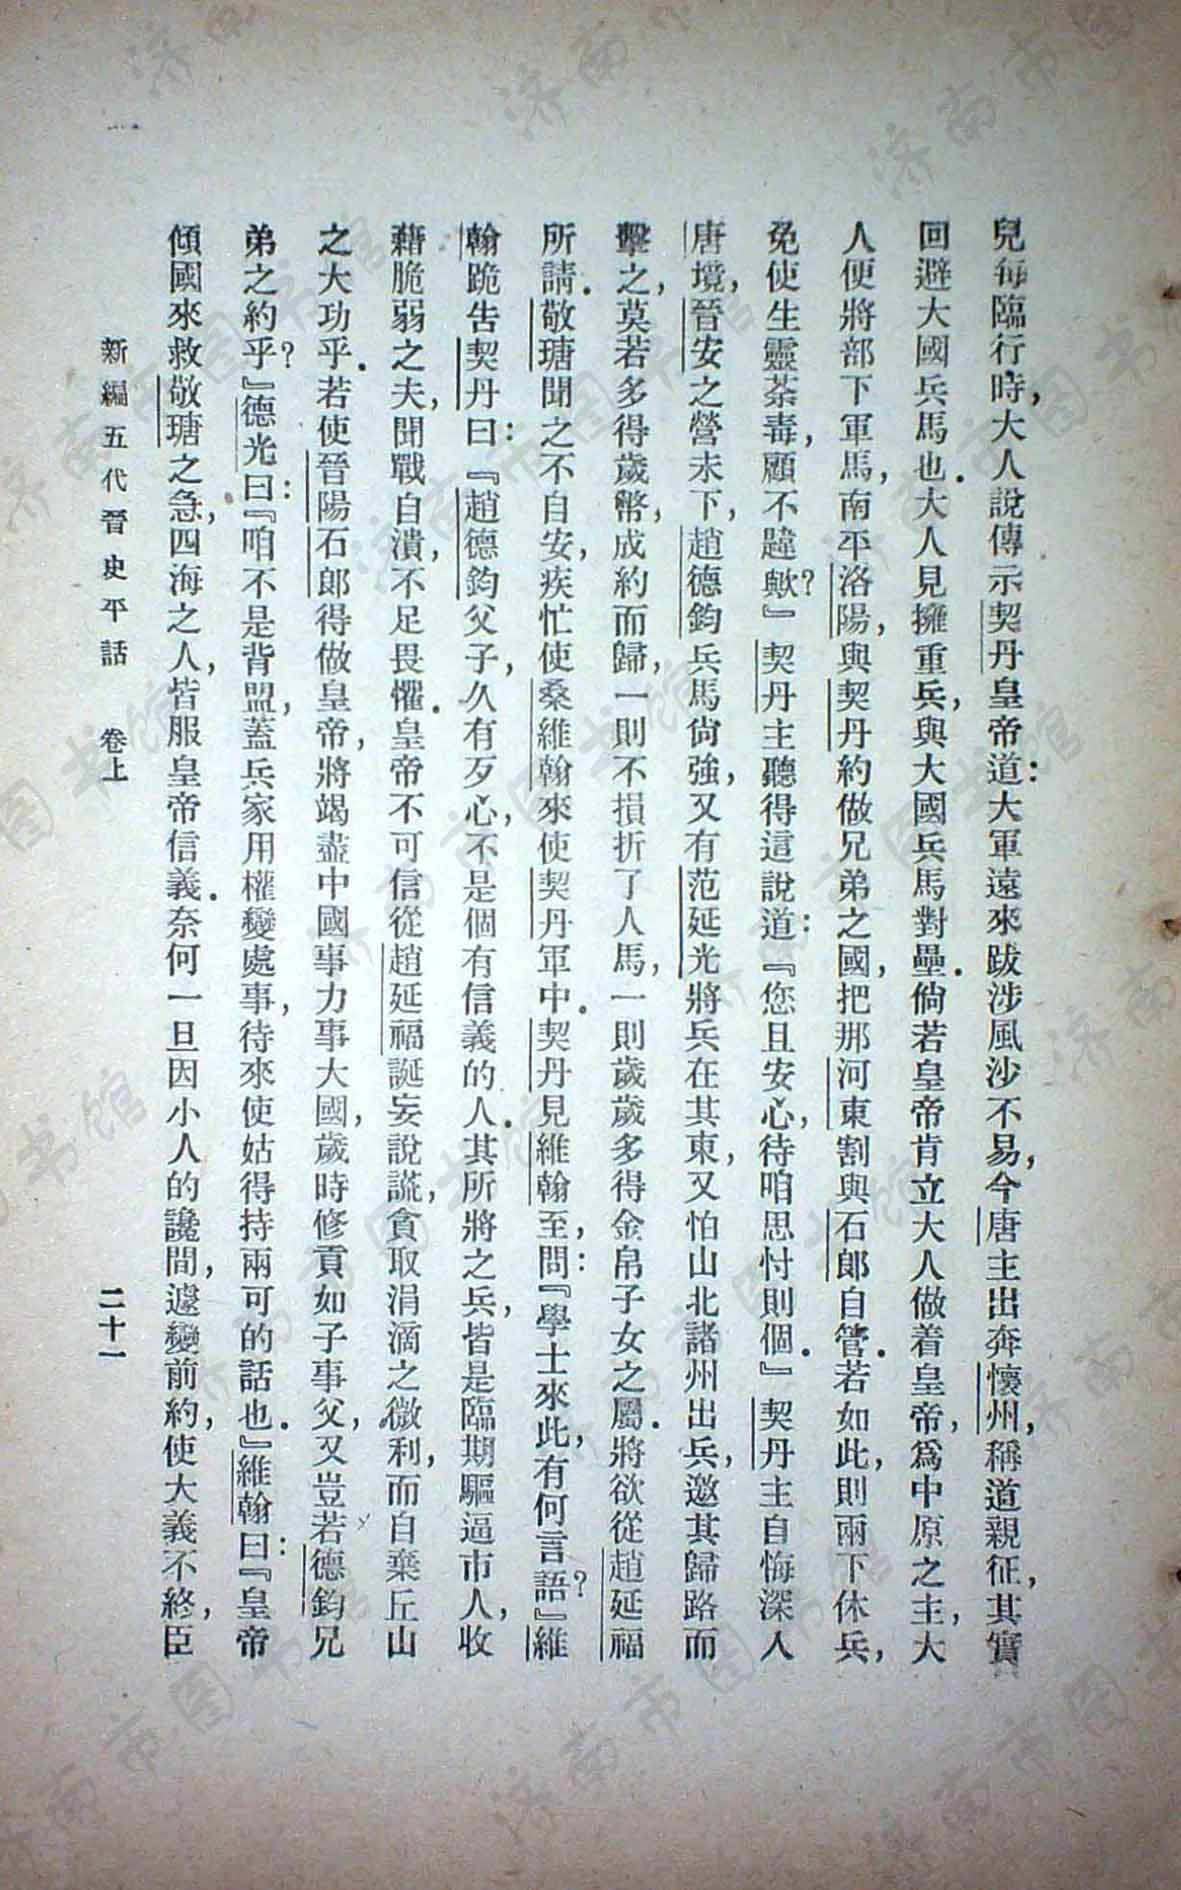 兒每臨行時，大人說傳示契丹皇帝道：大軍遠來跋涉風沙不易，今唐主出奔懷州，稱道親征，其實
回避大國兵馬也．大人見擁重兵，與大國兵馬對壘．倘若皇帝肯立大人做着皇帝，爲中原之主，大
人便將部下軍馬，南平洛陽，與契丹約做兄弟之國，把那河東割與石郎自管．若如此，則兩下休兵，
免使生靈荼毒，顧不韙歟？』契丹主聽得這說道：『您且安心，待咱思忖則個．』契丹主自悔深入
唐境，晉安之營未下，趙德鈞兵馬尙強，又有范延光將兵在其東，又怕山北諸州出兵，邀其歸路而
擊之，莫若多得歲幣，成約而歸，一則不損折了人馬，一則歲歲多得金帛子女之屬．將欲從趙延福
所請．敬瑭聞之不自安，疾忙使桑維翰來使契丹軍中．契丹見維翰至，問：『學士來此，有何言語？』維
翰跪告契丹曰：『趙德鈞父子，久有歹心，不是個有信義的人．其所將之兵，皆是臨期驅逼市人，收
藉脆弱之夫，聞戰自潰，不足畏懼．皇帝不可信從趙延福誕妄說謊，貪取涓滴之微利，而自棄丘山
之大功乎．若使晉陽石郎得做皇帝，將竭盡中國事力事大國，歲時修貢如子事父，又豈若德鈞兄
弟之約乎？』德光曰：『咱不是背盟，蓋兵家用權變處事，待來使姑得持兩可的話也．』維翰曰：『皇帝
傾國來救敬瑭之急，四海之人，皆服皇帝信義．奈何一旦因小人的讒間，遽變前約，使大義不終，臣
新編五代晉史平話　卷上　二十一
济南市图书馆